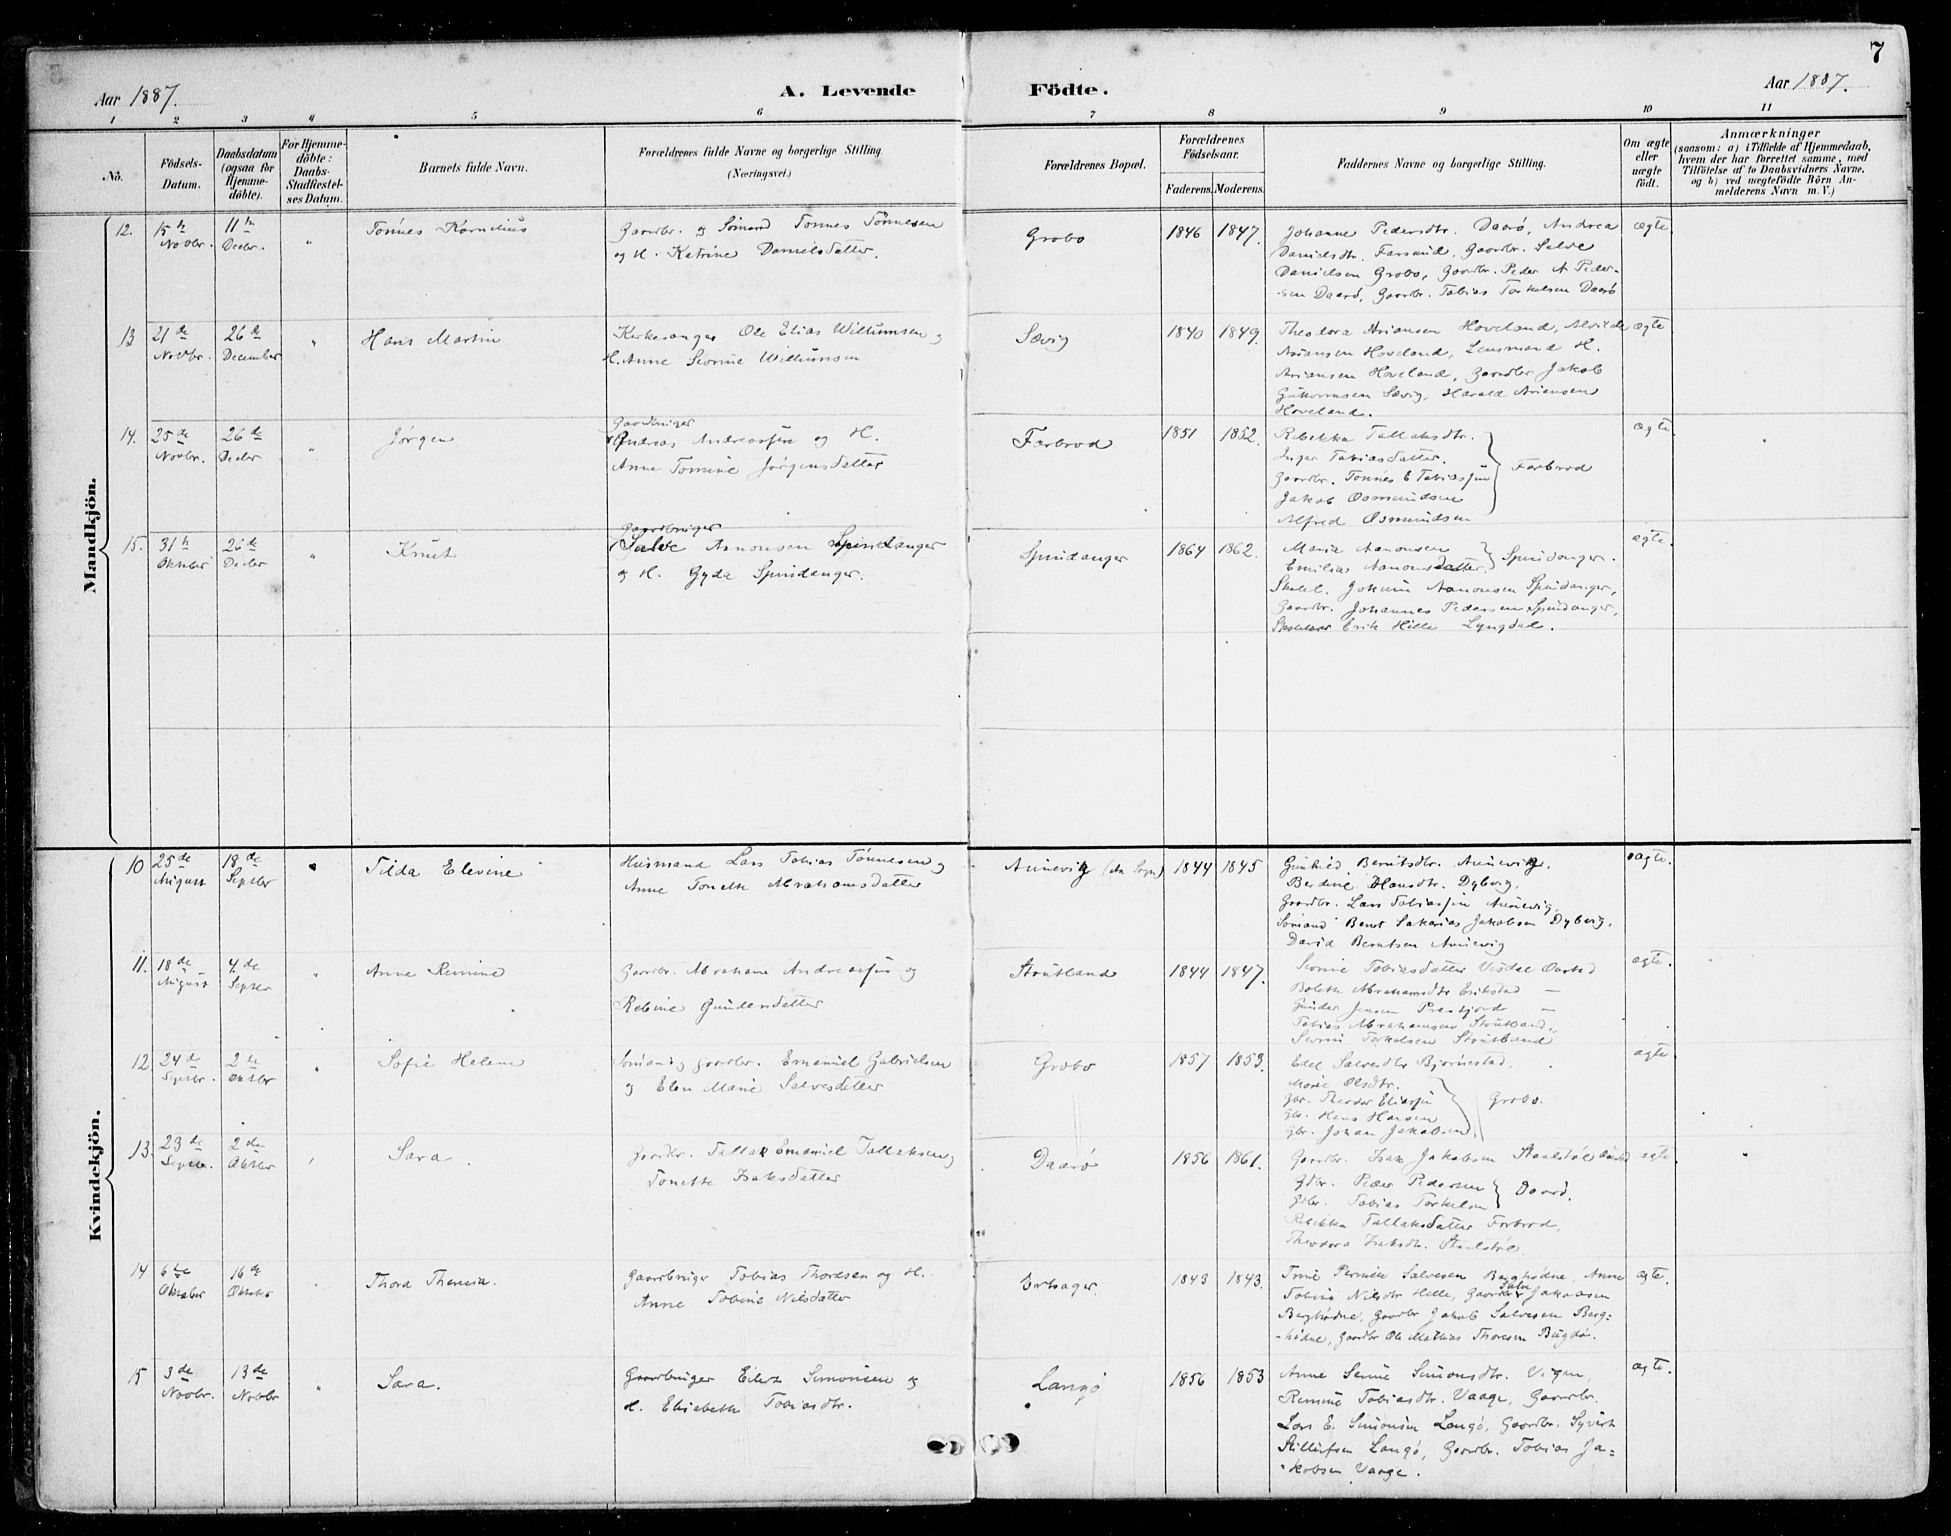 7
Aar 1887.
A. Levende Födte.
Aar 1887.
1 2 3 4 5 6 7 8 9 10 11
No.
Födsels-Datum.
Daabsdatum (ogsaa for Hjemmedöbte).
For Hjemmedöbte: Daabs-Stadfæstelses Datum.
Barnets fulde Navn.
Forældrenes fulde Navne og borgerlige Stilling.
(Næringsvei.)
Forældrenes Bopæl.
Forældrenes Födselsaar.
Faderens. Moderens.
Faddernes Navne og borgerlige Stilling.
Om ægte eller uægte födt.
Anmærkninger
(saasom: a) i Tilfælde af Hjemmedaab,
hvem der har forrettet samme, med
Tilföielse af to Daabsvidners Navne,
og b) ved uægtefödte Börn An-
melderens Navn m. V.)
Mandkjön.
12. 15 Novbr. 11 Decbr. " Tönnes Kornelius
Gaardbr. og Sömand Tönnes Tönnesen
og H. Katrine Danielsdatter.
Grobo 1846 1847.
Johanne Pedersdtr. Daarö, Andrea
Danielsdtr. Farsund, Gaardbr. Salve
Danielsen Grobo, Gaardbr. Peder A Peder-
sen Daarö, Gaardbr. Tobias Torkelsen Daarö
ægte
13 21de Novbr. 26de December " Hans Martin
Kirkesanger Ole Elias Willumsen og
H. Anne Serine Willumsen
Sævig 1840 1849.
Theodora Ariansen Hoveland, Alvilde
Ariansen Hoveland, Lensmand H.
Ariansen Hoveland, Gaardbr Jakob
Guttormsen Sævig, Harald Ariansen
Hoveland.
ægte
14. 25de Novbr. 26de Decbr " Jørgen
Gaardbruger
Andreas Andreassen og H.
Anne Tomine Jørgensdatter
Farbrod 1851 1852.
Rebekka Tallaksdtr.
Inger Tobiasdatter.
Gaardbr. Tönnes E Tobiassen
Jakob Osmundsen
Alfred Osmundsen
Farbrod
ægte
15. 31 Oktober 26de Decbr " Knut
Gaardbruger
Salve Aanonsen Spindanger
og H. Gyda Spindanger.
Spindanger 1864 1862.
Marie Aanonsen
Emilie Aanonsdatter
Spindanger.
Skolel. Jokum Aanonsen Spindanger,
Gaardbr. Johannes Pedersen Spindanger,
Erik Hille Lyngdal.
ægte
Kvindekjön.
10 25de August 18de Septbr Tilda Elevine
Husmand Lars Tobias Tönnesen og
Anne Tonette Abrahamsdatter
1844 1845
Gunhild Berntsdtr.
Berdine Hansdtr. Dybvig,
Gaardbr. Lars Tobiassen
Sömand Bernt Sakarias Jakobsen Dybvig,
David Berntsen
ægte.
11. 18de August 4.de Septbr " Anne Remine
Gaardbr. Abraham Andreassen og
Rebine Gundersdatter
Strutland 1844 1847.
Serine Tobiasdatter
Bolette Abrahamsdtr Erikstad —
Gunder Jensen Presfjord —
Tobias Abrahamsen Strutland.
Serine Torkelsen Strutland
ægte.
12 24de Septbr. 2de Oktbr " Sofie Helene
Sömand og gaardbr. Emanuel Gabrielsen
og Elen Marie Salvesdatter
Grobo 1857 1853.
Edel Salvesdtr Bjørnestad,
Marie Olsdtr.
Gbr. Theodor Eliassen
Gbr. Hans Hansen
Gbr. Johan Jakobsen
Grobo.
ægte
13. 23de Septbr. 2de Oktbr Sara
Gaardbr. Tallak Emanuel Tallaksen og
Tonette Isaksdatter
Daarö 1856 1861.
Gaardbr. Isak Jakobsen Staalstøl
Gdbr. Peder Pedersen
Gdbr. Tobias Torkelsen
Daarö.
Rebekka Tallaksdatter Farbrod,
Theodora Isaksdtr. Staalstøl.
ægte
14 6te Oktober 16de Oktober Thora Themia.
Gaardbruger Tobias Thoresen og H.
Anne Tobine Nilsdatter
Ertsager 1843 1843.
Salvesen Berghødne, Anne
Tobine Nilsdtr Helle, Gaardbr Salve Jakobsen
Berghødne, Gaardbr Jakob Salvesen Berg-
hødne, Gaardbr Ole Mathias Thoresen
ægte.
15 3de Novbr. 13de Novbr " Sara.
Gaardbruger Eilert Simonsen og
H. Elisabeth Tobiasdtr.
Langö 1856 1853
Anne Simonsdtr. Vigan,
Remine Tobiasdtr. Vaage, Gaardbr.
Lars E. Simonsen Langö, Gaardbr. Syvert
Langö, Gaardbr. Tobias Ja-
kobsen Vaage.
ægte.